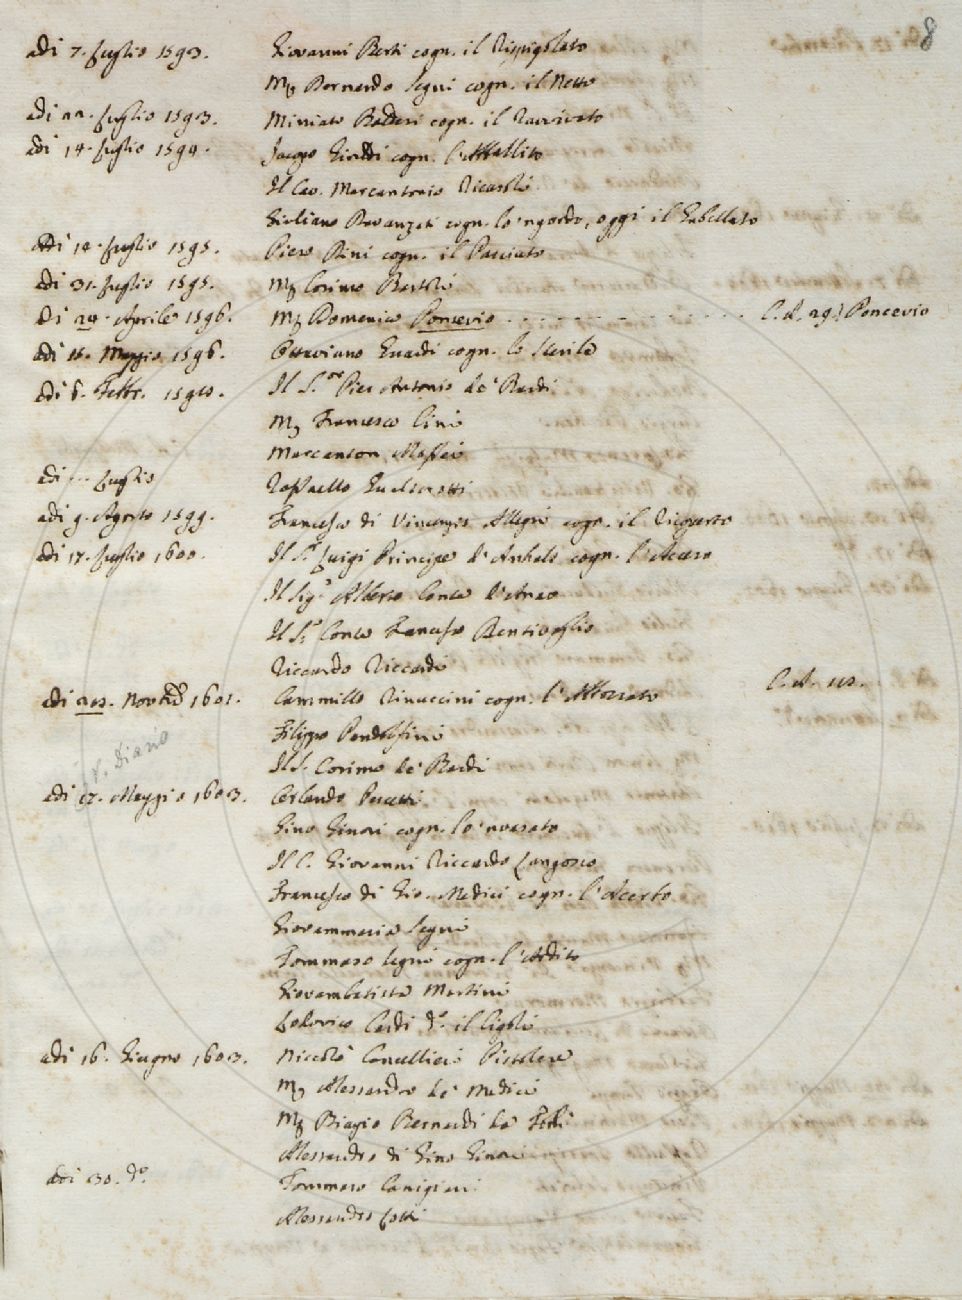 8
adi 7. Luglio 1593. Giovanni Berti cogn. il Rispigolato
Mʒ Bernardo Segni cogn. il Netto
adi 22. Luglio 1593. Miniato Balderi cogn. il Ravvivato
adi 14. Luglio 1594. Jacopo Giraldi cogn.
Il Cav. Marcantonio Ricasoli
Giuliano Davanzati cogn. lo'ngordo, oggi il Gabellato
adi 14. Luglio 1595. Piero Dini cogn. il Pasciuto
adi 31. Luglio 1595. Mʒ Cosimo Bartoli
di 24. Aprile 1596. Mʒ Domenico Poncevio . . . . . . . . . . . . . . C. A. 29. Poncevio
adi Maggio 1596. Ottaviano cogn. lo Sterile
adi 6. Febbr. Il S.ore Pier Antonio de' Bardi
Mʒ Francesco Cini
Marcanton Maffei
adi ... Luglio Raffaello Gualterotti
adi 9. Agosto 1599. Francesco di Vincenzio Allegri cogn. il Ricoverto
adi 17. Luglio 1600. Il S.r Luigi Principe d'Anhalt cogn. l'Acceso
Il Sig.r Alberto Conte
Il S.r Conte Francesco Bentivoglio
Riccardo Riccardi
adi Novembre 1601. Cammillo Rinuccini cogn. C. A.
Filippo Pandolfini
Il S. Cosimo de' Bardi
v. Diario
adi 17. Maggio 1603. Orlando Pescetti
Gino Ginori cogn. lo'nvasato
Il C. Giovanni Riccardo Langosco
Francesco di Gio. Medici cogn. l'Acerbo
Giovammaria Segni
Tommaso Segni cogn. l'Ardito
Giovambatista Martini
Lodovico Cardi d.o il Cigoli
adi 16. Giugno 1603. Niccolò Cancellieri Pistolese
Mʒ Alessandro de' Medici
Mʒ Biagio Bernardi da Forlì
Alessandro di Gino Ginori
adi 30. d.o Tommaso Canigiani
Alessandro